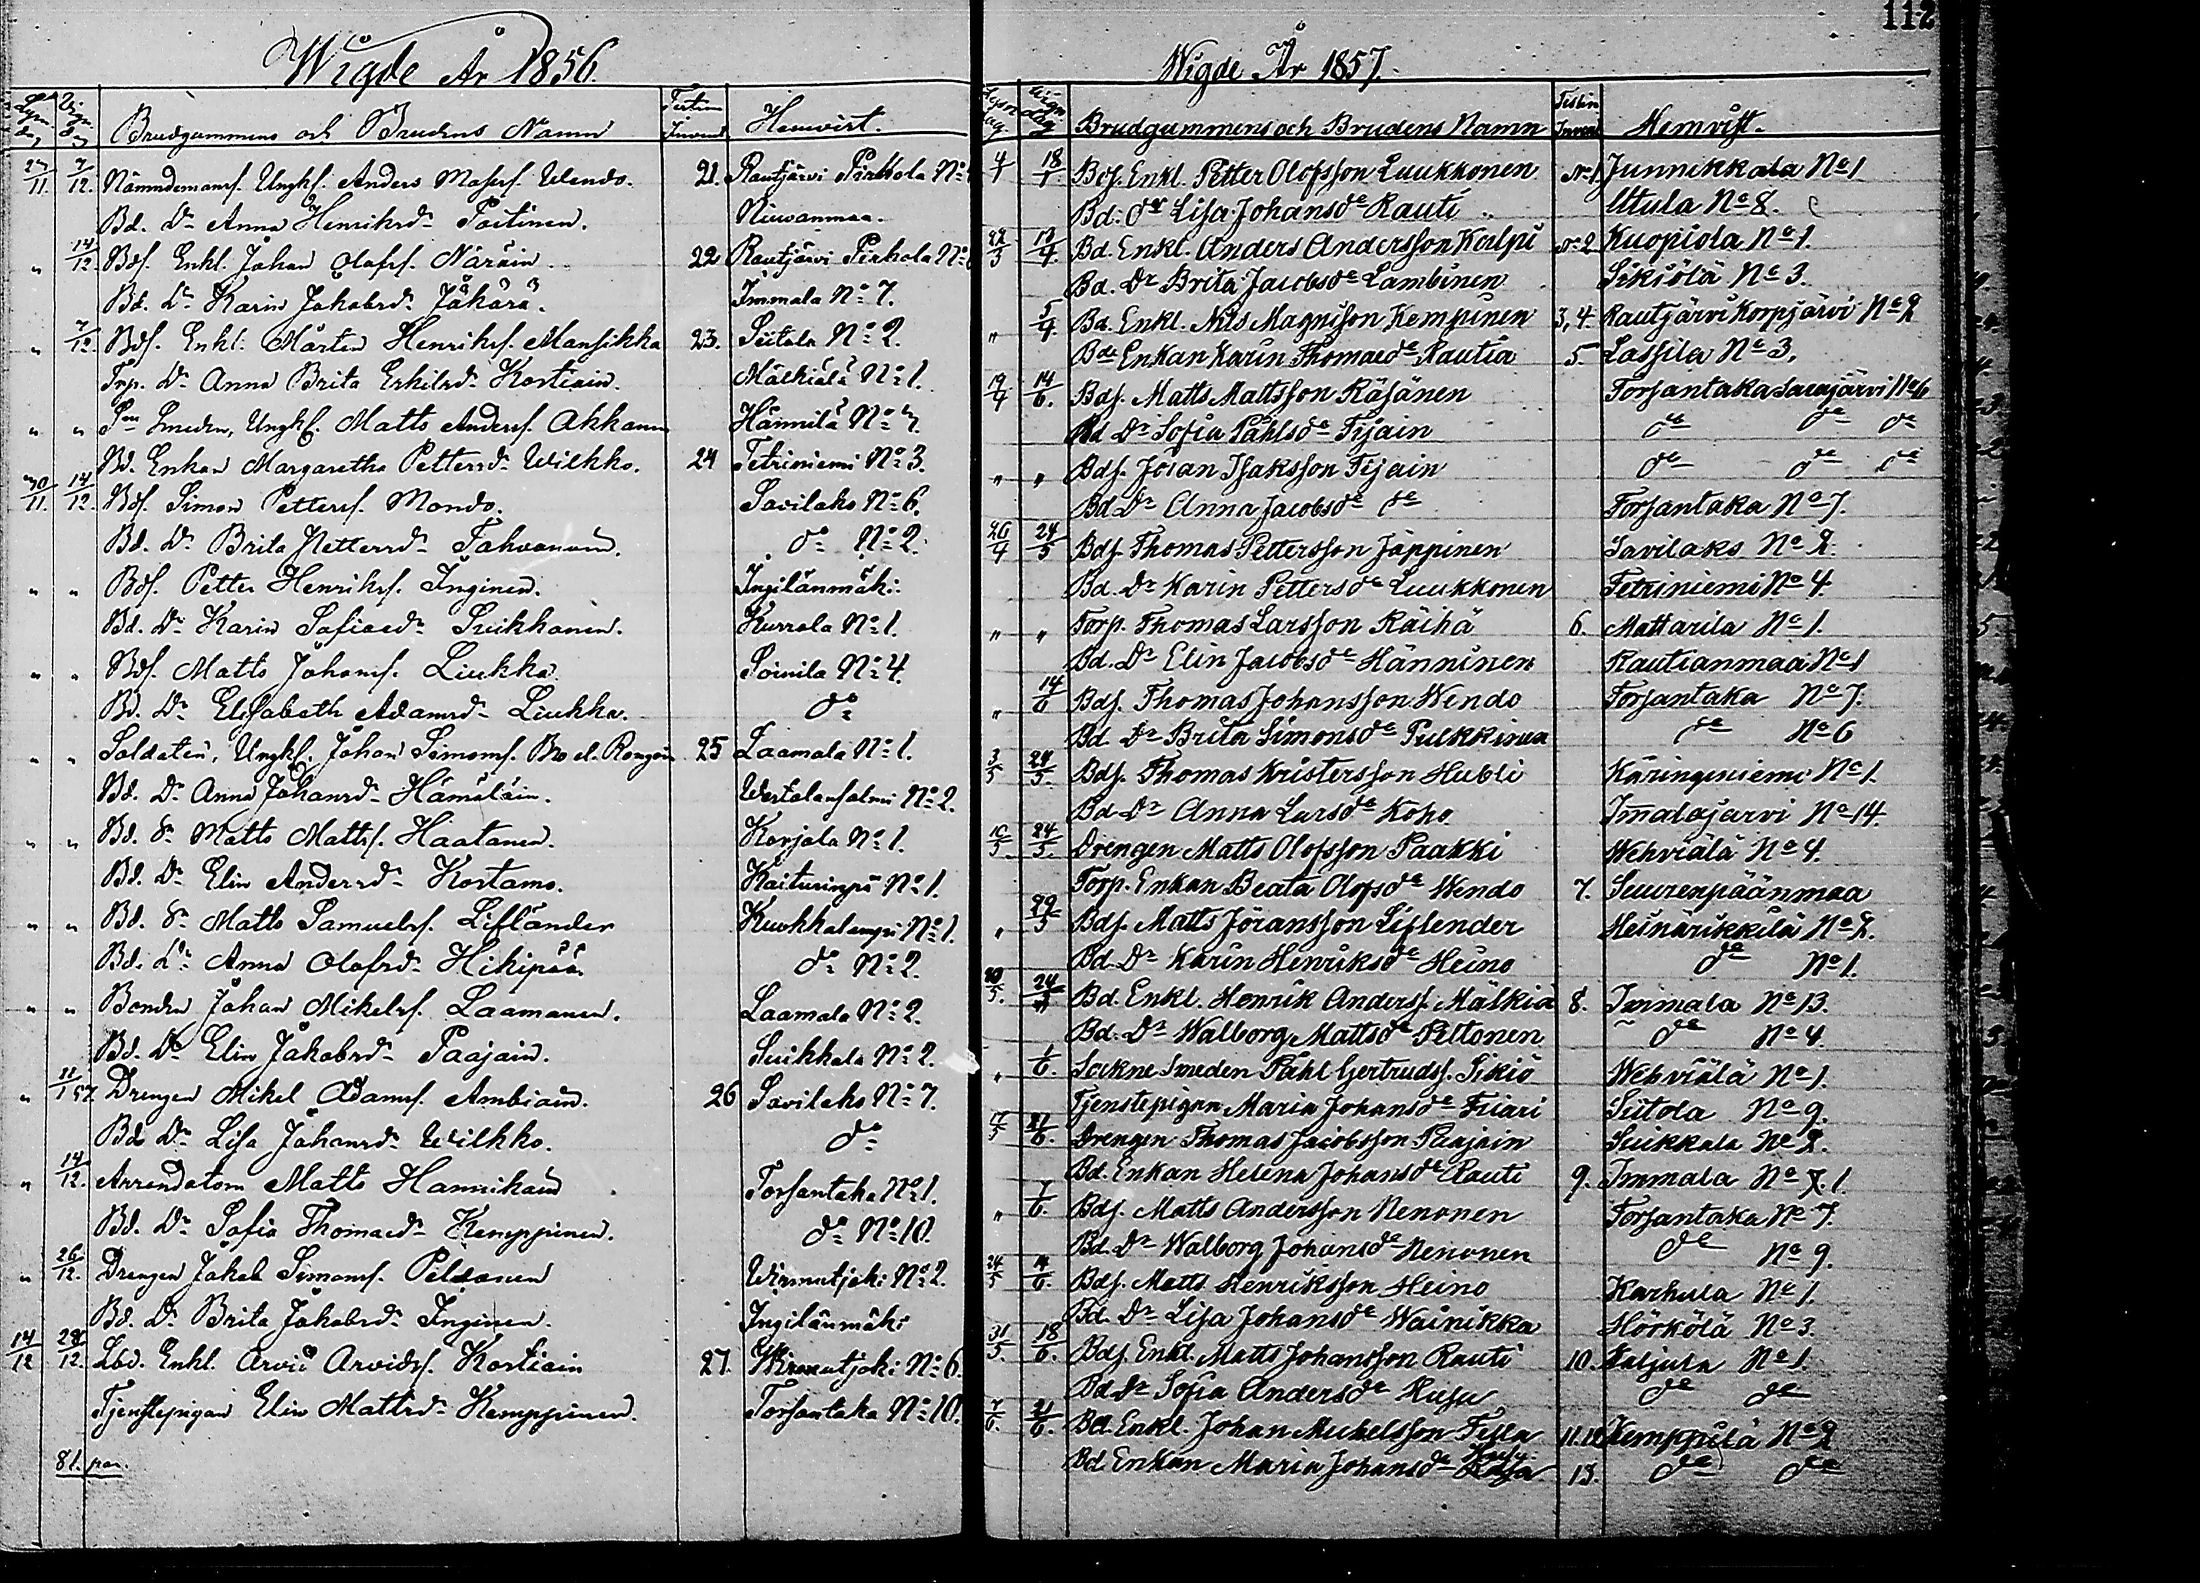 112
Wigde År 1856.
Brudgummens och Brudens Namn Hemvist.
27/11 7/12. Nämndemans. Ungk. Anders Matss. Wendo. 21. Rautjärvi Pirhola No
Bd. Dr Anna Henriksdr Poitinen. Niuvanmaa.
" 14/12 Bds. Enkl. Johan Olofss. Näräin. 22 Rautjärvi Pirhola No
Bd. Dr Karin Jakobsdr Jäkärä. Immala No 7.
" 7/12. Bds. Enkl. Mårten Henrikss. Mansikka 23. Siitola No 2.
Torp. Dr Anna Brita Erkilsdr Kostiain. Mälkiälä No 1.
" " Smeden, Ungk. Matts Anderss. Akkanen Hännilä No 7.
Bd. Enkan Margaretha Pettersdr Wilkko. 24 Tetriniemi No 3.
30/11. 14/12. Bds. Simon Petterss. Mondo. Savilaks No 6.
Bd. Dr Brita Pettersdr Tahvanain. do No 2.
" " Bds. Petter Henrikss. Inginen. Ingilänmäki
Bd. Dr Karin Sofiaedr Suikkanen. Kurrola No 1.
" " Bds. Matts Johanss. Liukka. Soinila No 4.
Bd. Dr Elisabeth Adamsdr Liukko. do
" " Soldaten, Ungk. Johan Simonss. Bro el. Rongain 25 Laamala No 1.
Bd. Dr Anna Johansdr Hämäläin. Wartalansalmi No 2.
" " Bd. Sn Matts Mattss. Haatanen. Korjala No 1.
Bd. Dr Elin Andersdr Kostamo. Kaitusinpä No 1.
" " Bd. Sn Matts Samuelss. Lifländer Kuokkalanpä No 1.
Bd. Dr Anna Olofsdr Hikipää. do No 2.
" " Bonden Johan Mikelss. Laamanen. Laamala No 2.
Bd. Dr Elin Jakobsdr Paajain. Suikkala No 2.
" 11/1 57. Drengen Mikel Adamss. Ambiain. 26 Savilaks No 7.
Bd Dr Lisa Johansdr Wilkko. do
" 14/12. Arrendatorn Matts Hannikain Torsantaka No 1.
Bd. Dr Sofia Thomaedr Kemppinen. do No 10.
" 26/12. Drengen Jakob Simonss. Peldonen Wirmutjoki No 2.
Bd. Dr Brita Jakobsdr Inginen. Ingilänmäki
14/12 28/12. Lbd. Enkl. Arvid Arvidss. Kostiain 27. Wirmutjoki No 6.
Tjenstepigan Elin Mattsdr Kemppinen. Torsantaka No 10.
81. par.
Wigde År 1857.
Brudgummens och Brudens Namn Hemvist.
4/1 18/1 Bds. Enkl. Petter Olofsson Luukkonen No 1 Junnikkala No 1
Bd. dr Lisa Johansdr Rauti Utula No 8.
22/3 13/4. Bd. Enkl. Anders Andersson Kulpi No 2 Kuopiola No 1.
Bd. Dr Brita Jacobsdr Lambinen Sikiölä No 3.
" 5/4. Bd. Enkl. Nils Magnisson Kempinen 3, 4. Rautjärvi Korpjärvi No 2
Bde Enkan Karin Thomaedr Rautia 5 Lassila No 3.
19/4 14/6. Bds. Matts Mattsson Räsänen Torsantaka Salajärvi No 6
Bd Dr Sofia Påhlsdr Tijain do do do
" " Bds. Jöran Isaksson Tijain do do do
Bd Dr Anna Jacobsdr do Torsantaka No 7.
26/4 24/5 Bds Thomas Pettersson Jäppinen Savilaks No 2.
Bd. Dr Karin Pettersdr Luukkonen Tetriniemi No 4.
" " Torp. Thomas Larsson Räihä 6. Mattarila No 1.
Bd. Dr Elin Jacobsdr Hänninen Rautianmaa No 1
" 14/6 Bds. Thomas Johansson Wendo Torsantaka No 7.
Bd. Dr Brita Simonsdr Pulkkinen do No 6
3/5 24/5. Bds. Thomas Kristersson Hubli Käringiniemi No 1.
Bd Dr Anna Larsdr Koho Imalajärvi No 14.
10/5. 24/5. Drengen Matts Olofsson Paakki Wehviälä No 4.
Torp. Enkan Beata Olofsdr Wendo 7. Suurenpäänmaa
" 29/5 Bds. Matts Jöransson Liflender Heinärikkilä No 2.
Bd. Dr Karin Henriksdr Heino do No 1.
20/5. Bd. Enkl. Henrik Anderss. Mälkiä 8. Immala No 13.
Bd. Dr Walborg Mattsdr Peltonen do No 4.
" 1/6. Sockne Smeden Påhl Gertruds. Sikiö Wehviälä No 1.
Tjenstepigan Maria Johansdr Friari Siitola No 9.
17/5 21/6. Drengen Thomas Jacobsson Paajain Suikkala No 2.
Bd. Enkan Helena Johansdr Rauti 9. Immala No 1.
" 7/6. Bds. Matts Andersson Nenonen Torsantaka No 7.
Bd. Dr Walborg Johansdr Nenonen do No 9.
24/5 14/6. Bds. Matts Henriksson Heino Karhula No 1.
Bd. Dr Lisa Johansdr Wainikka Hörkölä No 3.
31/5. 18/6. Bds. Enkl. Matts Johansson Rauti 10. Kaljula No 1.
Bd. Dr Sofia Andersdr Kusu do do
7/6. 21/6. Bd. Enkl. Johan Michelsson Tilla 11.12 Kemppilä No 2
Bd. Enkan Maria Johansdr 13. do do